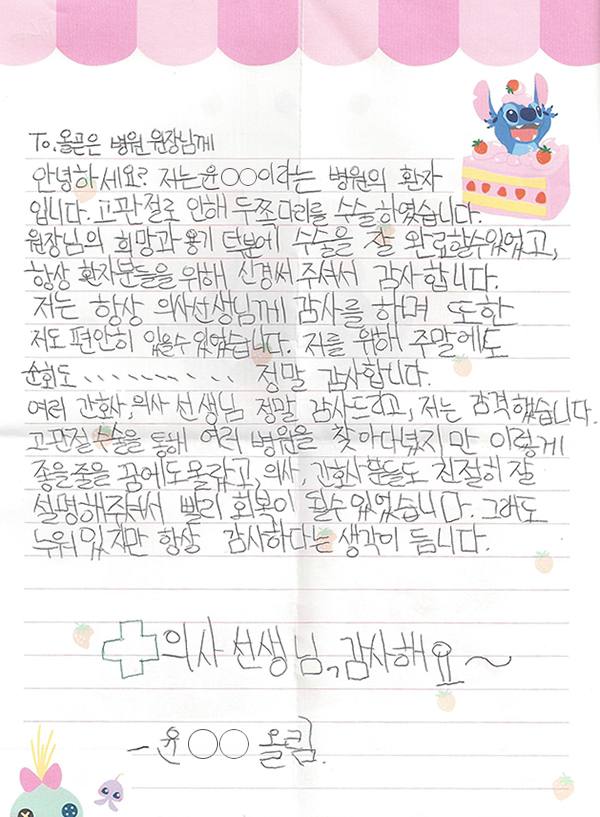 To. 올곧은 병원 원장님께
안녕하세요? 저는 윤○○이라는 병원의 환자
입니다. 고관절로 인해 두쪽다리를 수술하였습니다.
원장님의 희망과 용기 덕분에 수술을 잘 완료할수있었고,
항상 환자분들을 위해 신경써 주셔서 감사합니다.
저는 항상 의사선생님께 감사를 하며 또한
저도 편안히 있을수있었습니다. 저를 위해 주말에도
순회도 、、、、、、、、、、 정말 감사합니다.
여러 간호사, 의사 선생님 정말 감사드리고, 저는 감격했습니다.
고관절 수술을 통해 여러 병원을 찾아다녔지만 이렇게
좋을줄을 꿈에도몰랐고, 의사, 간호사 분들도 친절히 잘
설명해주셔서 빨리 회복이 될수 있었습니다. 그래도
누워있지만 항상 감사하다는 생각이 듭니다.
의사 선생님, 감사해요~
- 윤 ○○ 올림.